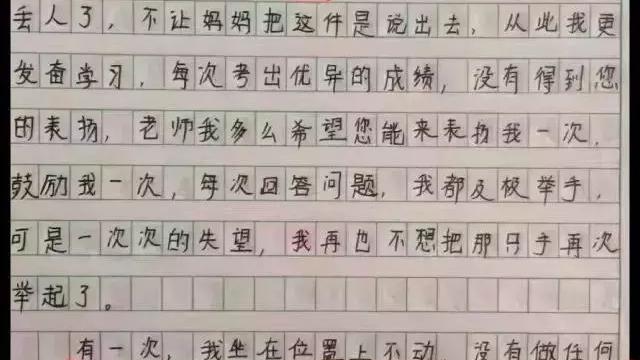 丢人了，不让妈妈把这件是说出去，从此我更
发奋学习，每次考出优异的成绩，没有得到您
的表扬，老师我多么希望您能来表扬我一次，
鼓励我一次，每次回答问题，我都及极举手，
可是一次次的失望，我再也不想把那只手再次
举起了。
有一次，我坐在位置上不动，没有做任何